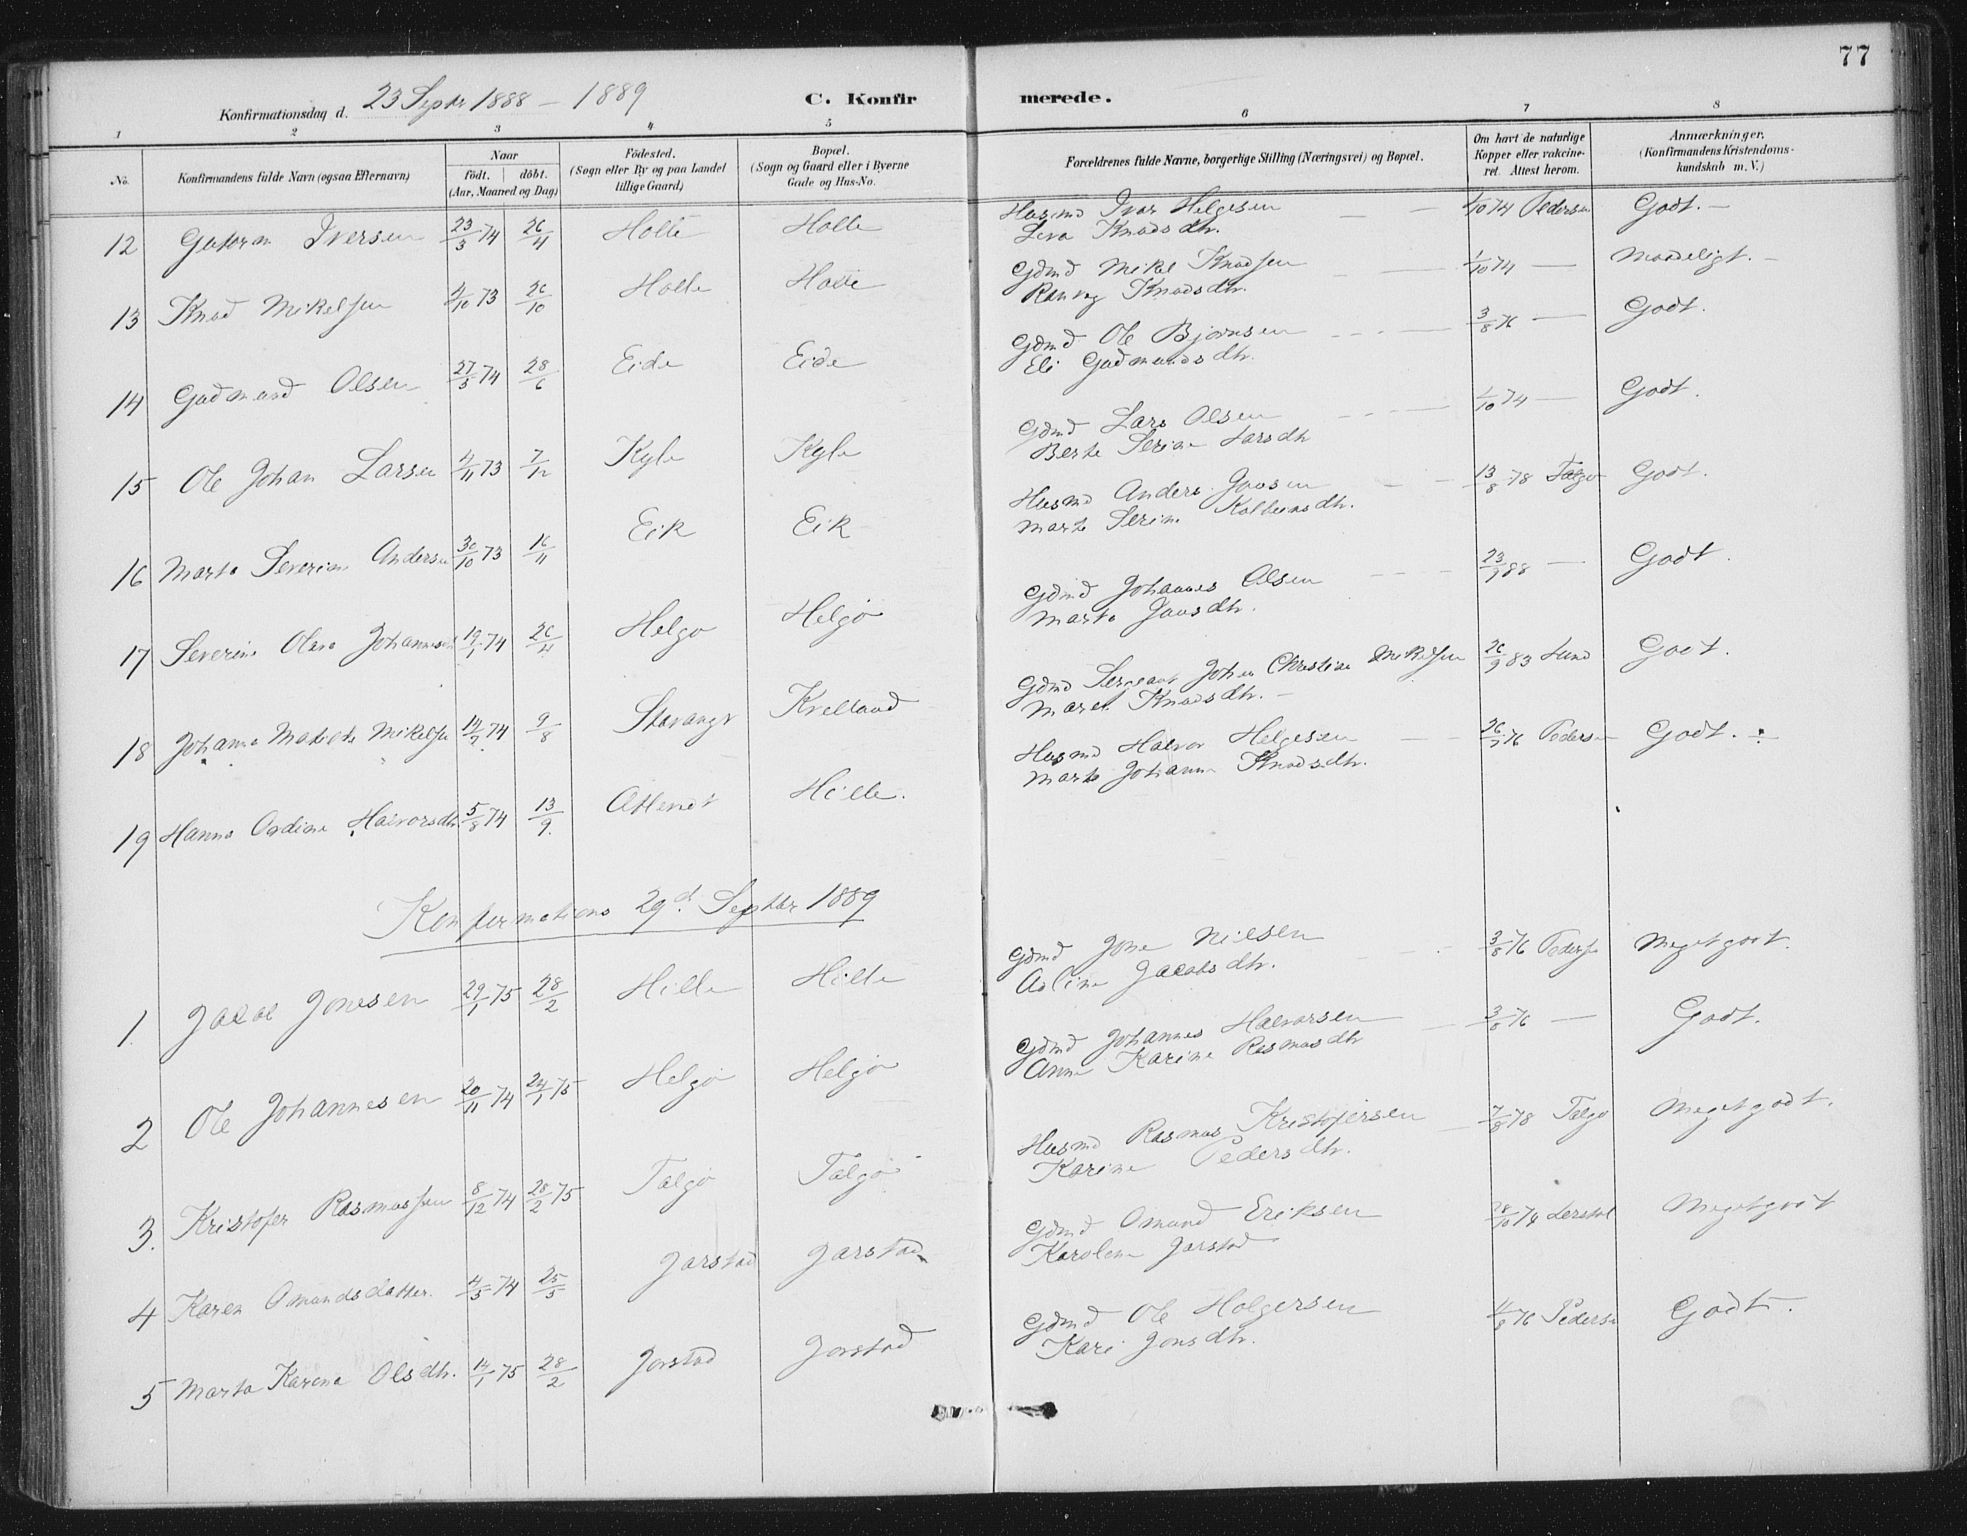 77
Konfirmationsdag d. 23 Septbr 1888 - 1889 C. Konfirmerede.
1 2 3 4 5 6 7 8
No. Konfirmandens fulde Navn (ogsaa Efternavn) Naar födt. döbt. (Aar, Maaned og Dag) Födested. (Sogn eller By og paa Landet tillige Gaard) Bopæl. (Sogn og Gaard eller i Byerne Gade og Hus-No. Forældrenes fulde Navne, borgerlige Stilling (Næringsvei) og Bopæl. Om havt de naturlige Kopper eller vakcineret. Attest herom. Anmærkninger. (Konfirmandens Kristendomskundskab m. V.)
12 Guttorm Iversen 23/3 74 26/4 Holte Holte Husmd Ivar Helgesen 1/10 74 Pedersen Godt. -
Knudsdtr.
13 Knud Mikelsen 4/10 73 26/10 Holte Holte Gdmd Mikel Knudsen 1/10 74 — Maadeligt. -
Ranveg Knudsdtr.
14 Gudmund Olsen 27/5 74 28/6 Eide Eide Gdmd Ole Bjørnsen 3/8 76 — Godt.
Eli Gudmundsdtr.
15 Ole Johan Larsen 4/11 73 7/12 Kyle Kyle Gdmd Lars Olsen 1/10 74 — Godt.
Berte Serine Larsdtr
16 Marta Severine Andersen 30/10 73 16/11 Eik Eik Husmd Anders 13/8 78 Godt.
Marte Serine Kolbeinsdtr.
17 Severine Olava Johannesen 19/1 74 26/4 Helgø Helgø Gdmd Johannes Olsen 23/9 88 — Godt.
Marta
18 Johanna Matilde Mikelsen 14/7 74 9/8 Stavanger Kvelland Gdmd Sergeant Johan Christian Mikelsen 26/9 83 Lund Godt.
Maret Knudsdtr. -
19 Hanna Andine Halvorsdtr. 5/8 74 13/9. Hille. Husmd Halvor Helgesen 26/7 76 Pedersen Godt.
Marte Johanne Knudsdtr.
Konfirmations 29d. Septbr 1889
1. Jacob Jonesen 29/1 75 28/2 Hille Hille Gdmd Jone Nielsen 3/8 76 Pedersen Megetgodt.
Jacobsdtr.
2 Ole Johannesen 20/11 74 24/1 75 Helgø Helgø Gdmd Johannes Halvorsen 3/8 76 — Godt.
Anne Karine Rasmusdtr
3. Kristofer Rasmussen 8/12 74 28/2 75 Talgø Talgø Husmd Rasmus Kristofersen 7/8 78 Talgø Megetgodt.
Karine Pedersdtr.
4 Karen Omundsdatter. 4/5 74 25/5 Jørstad Jørstad Gdmd Omund Eriksen 28/10 74 Megetgodt
Karolene Jørstad
5 Marta Karina Olsdtr. 14/1 75 28/2 Jørstad Jørstad Gdmd Ole Holgersen 4/8 76 Pedersen Godt.
Kari Jonsdtr.